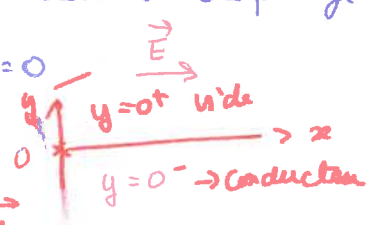 E
= 0
y
y = 0⁺ vide
0
x
y = 0⁻ → conducteur